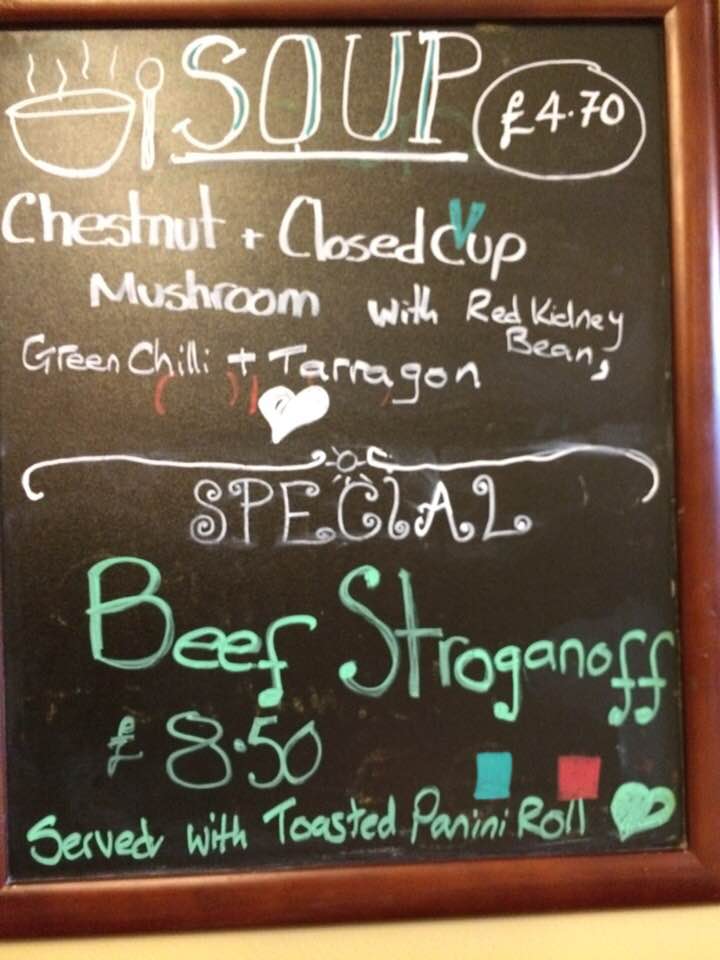 SOUP £4.70
Chestnut + Closed Cup
V
Mushroom with Red Kidney
Bean,
Green Chilli + Tarragon
SPECIAL
Beef Stroganoff
£8.50
Served with Toasted Panini Roll